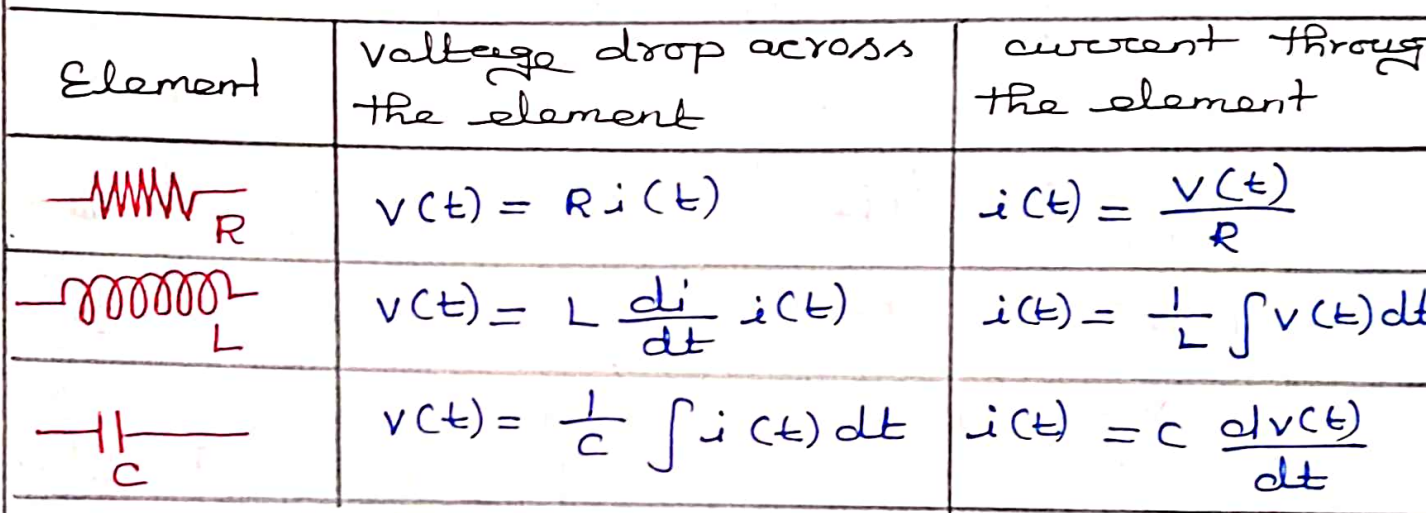 Element
voltage drop across
the element
current throug
the element
R
v(t) = R i(t)
i(t) = v(t)/R
L
v(t) = L di/dt i(t)
i(t) = 1/L ∫ v(t) dt
C
v(t) = 1/C ∫ i(t) dt
i(t) = C dv(t)/dt